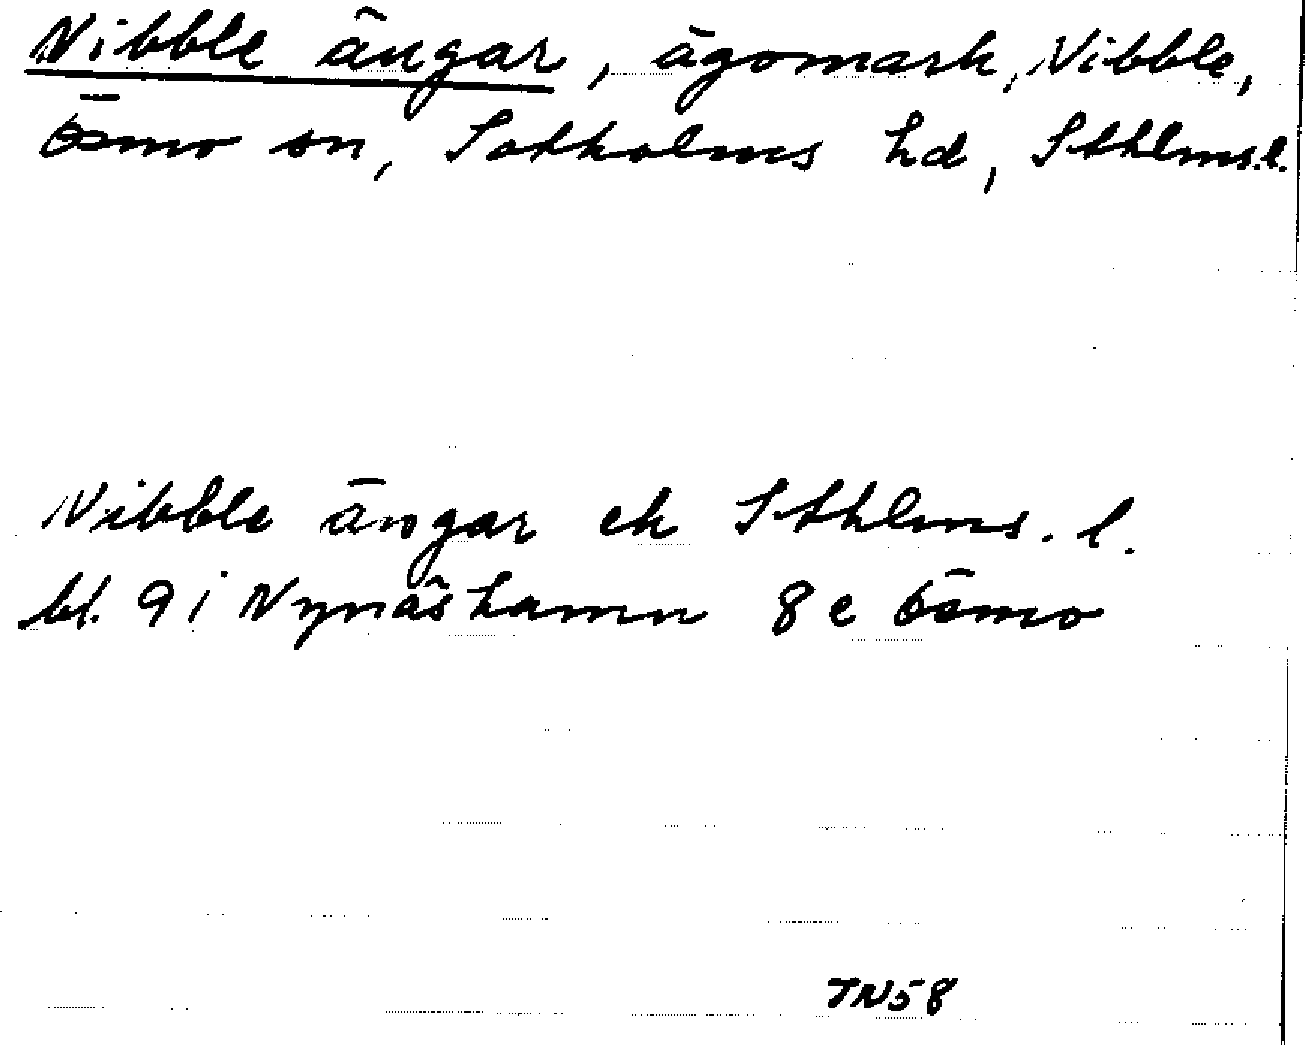 Nibble ängar, ägomark, Nibble,
Ösmo sn, Sotholms hd, Sthlms.l.
Nibble ängar ek Sthlms. l.
bl. 9i Nynäshamn 8e Ösmo
TN58